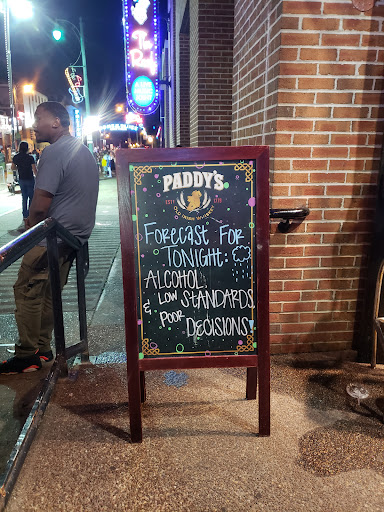 PADDY'S
OLD IRISH WHISKEY
FORECAST FOR
TONIGHT:
ALCOHOL,
LOW STANDARDS
& POOR
DECISIONS!